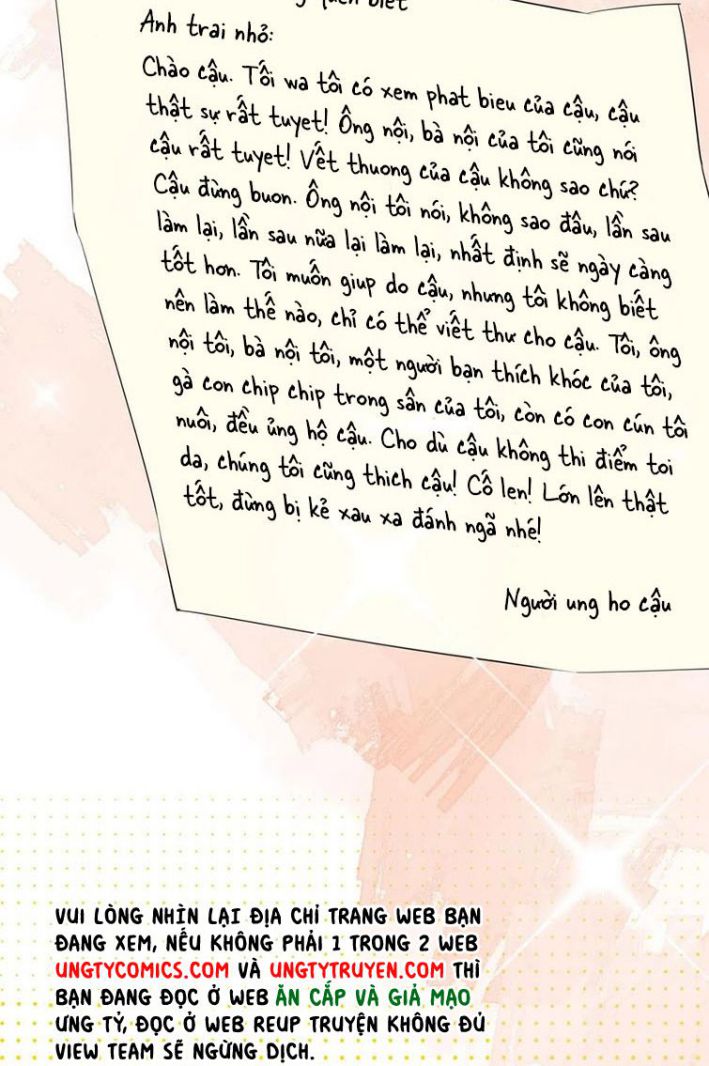 quen biết
Anh trai nhỏ:
Chào cậu. Tối wa tôi có xem phat bieu của cậu, cậu
thật sự rất tuyet! Ông nội, bà nội của tôi cũng nói
cậu rất tuyet! Vết thuong của cậu không sao chứ?
Cậu đừng buon. Ông nội tôi nói, không sao đâu, lần sau
làm lại, lần sau nữa lại làm lại, nhất định sẽ ngày càng
tốt hơn. Tôi muốn giup do cậu, nhưng tôi không biết
nên làm thế nào, chỉ có thể viết thư cho cậu. Tôi, ông
nội tôi, bà nội tôi, một người bạn thích khóc của tôi,
gà con chip chip trong sân của tôi, còn có con cún tôi
nuôi, đều ủng hộ cậu. Cho dù cậu không thi điểm toi
da, chúng tôi cũng thich cậu! Cố len! Lớn lên thật
tốt, đừng bị kẻ xau xa đánh ngã nhé!
Người ung ho cậu
VUI LÒNG NHÌN LẠI ĐỊA CHỈ TRANG WEB BẠN
ĐANG XEM, NẾU KHÔNG PHẢI 1 TRONG 2 WEB
UNGTYCOMICS.COM VÀ UNGTYTRUYEN.COM THÌ
BẠN ĐANG ĐỌC Ở WEB ĂN CẮP VÀ GIẢ MẠO
ƯNG TỶ, ĐỌC Ở WEB REUP TRUYỆN KHÔNG ĐỦ
VIEW TEAM SẼ NGỪNG DỊCH.